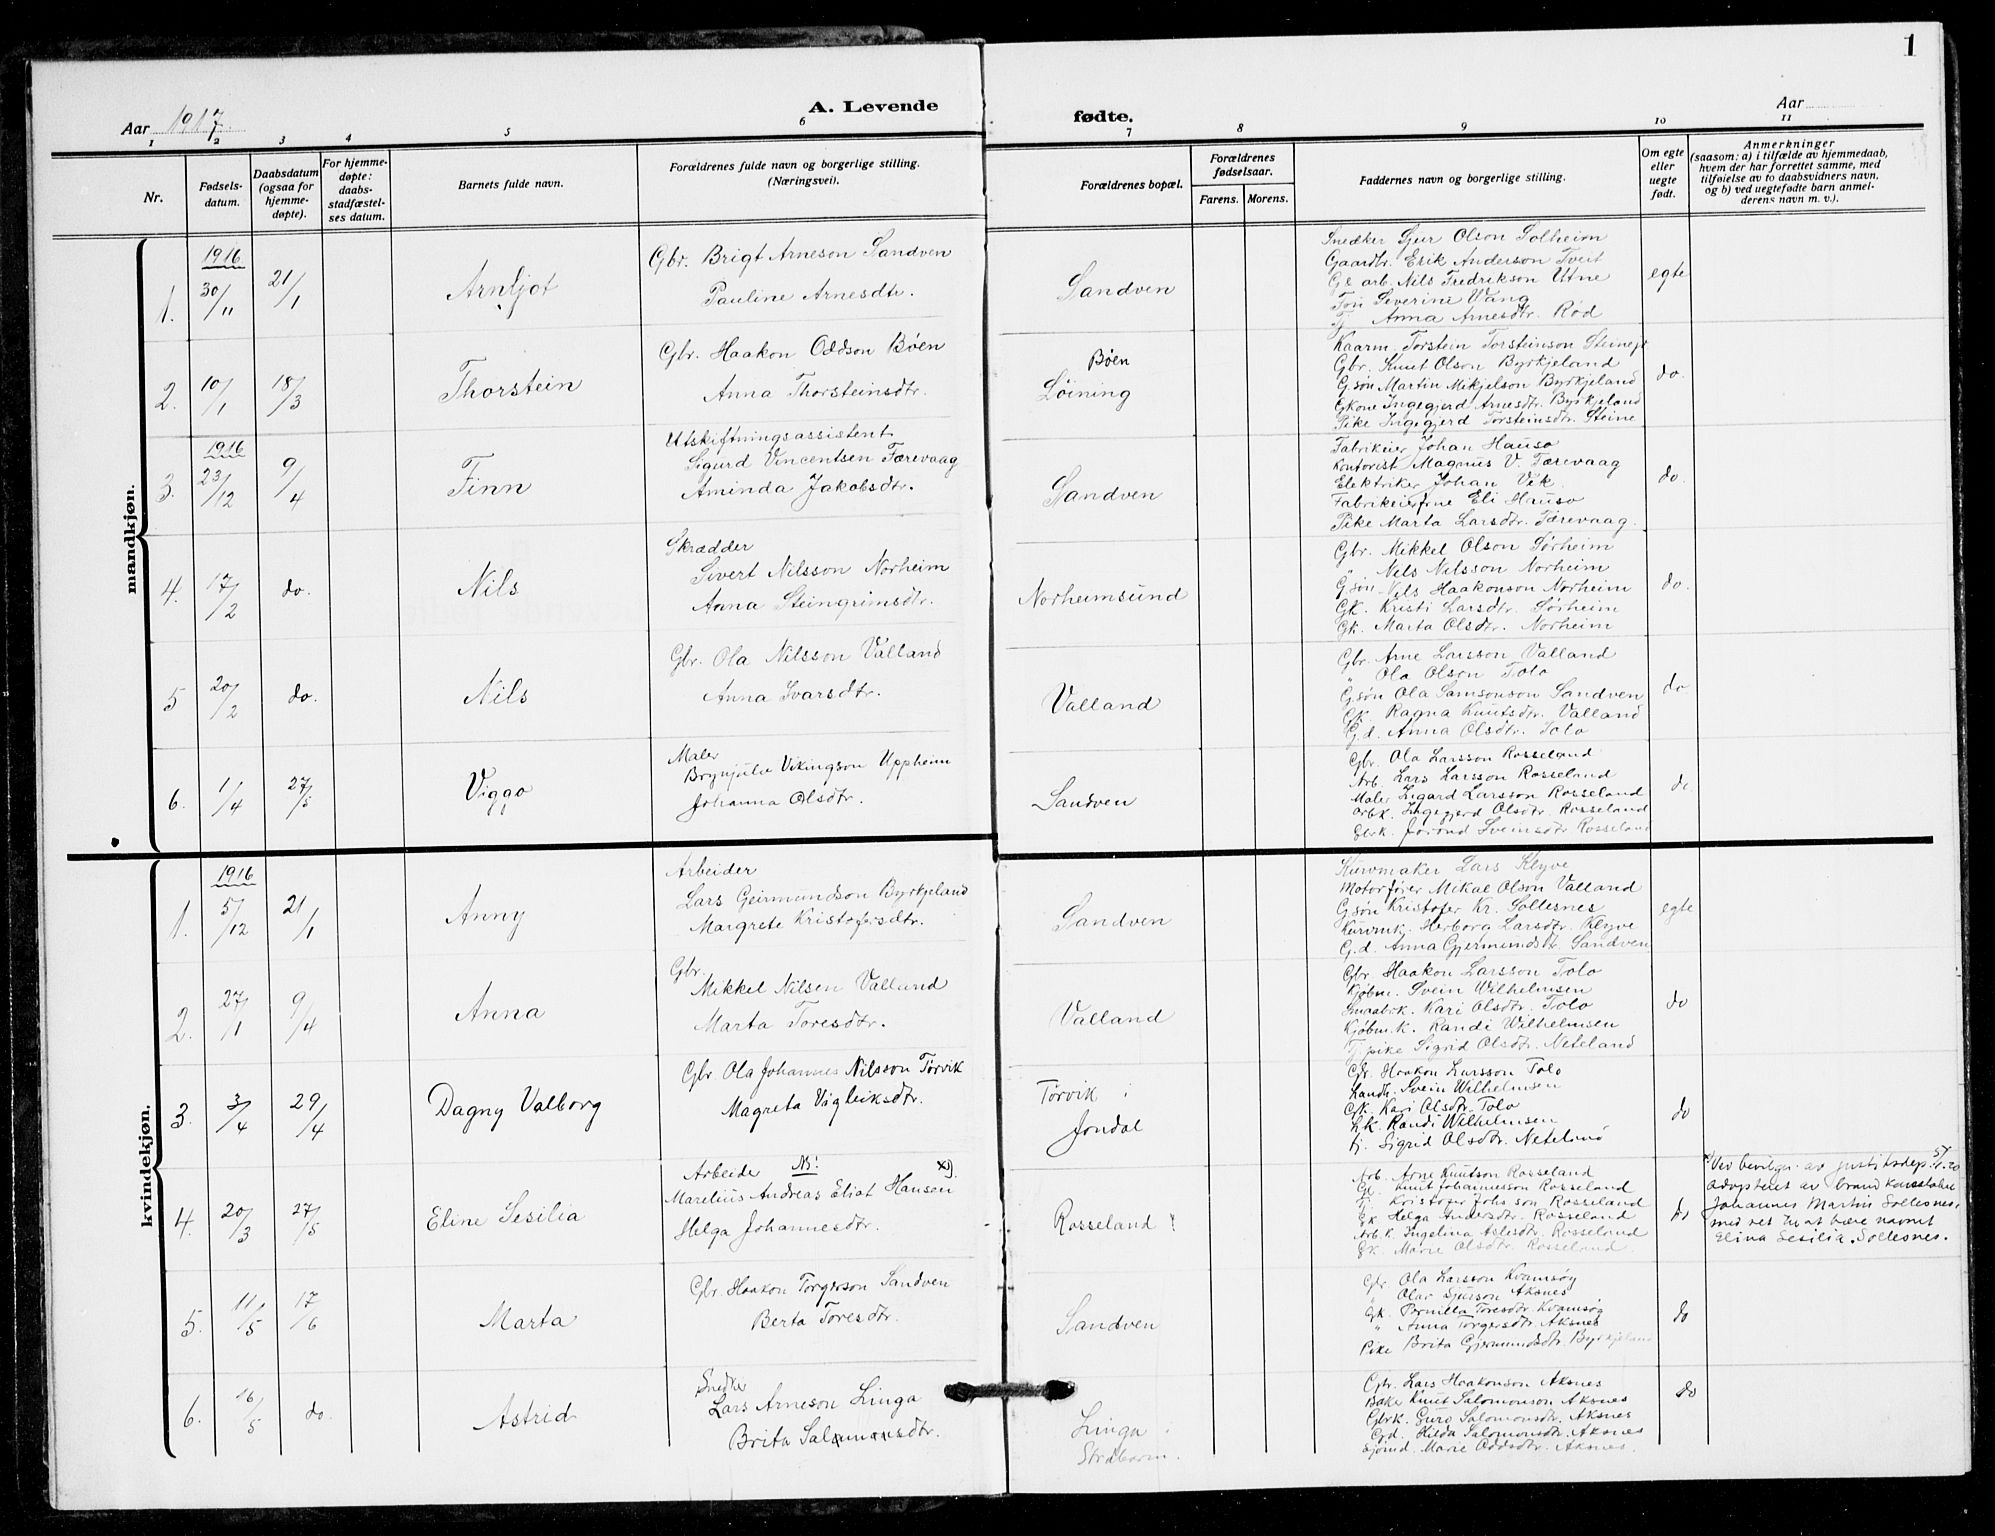 1
A. Levende fødte.
Aar 1917
Aar
1 2 3 4 5 6 7 8 9 10 11
Nr.
Fødsels-
datum.
Daabsdatum
(ogsaa for
hjemme-
døpte).
For hjemme-
døpte:
daabs-
stadfæstel-
ses datum.
Barnets fulde navn.
Forældrenes fulde navn og borgerlige stilling.
(Næringsvei).
Forældrenes bopæl.
Forældrenes
fødselsaar.
Farens. Morens.
Faddernes navn og borgerlige stilling.
Om egte
eller
uegte
født.
Anmerkninger
(saasom: a) i tilfælde av hjemmedaab,
hvem der har forrettet samme, med
tilføielse av to daabsvidners navn,
og b) ved uegtefødte barn anmel-
derens navn m. v.).
mandkjøn.
1. 1916 30/11 21/1
Arnljot
Gbr. Brigt Arneson Sandven
Pauline Arnesdtr.
Sandven
Snedker Sjur Olson Solheim
Gaardbr. Erik Anderson Tveit
arb. Nils Fredrikson Utne
Severine Vang
Tj Anna Arnesdtr. Rød
egte
2. 10/1 18/3
Thorstein
Gbr. Haakon Oddson Bøen
Anna Thorsteinsdtr.
Bøen
Løining
Kaarm. Torstein Torsteinson Steine
Gbr. Knut Olson Byrkjeland
Gsøn Martin Mikjelson Byrkjeland
Gkone Ingegjerd Arnesdtr. Byrkjeland
Pike Ingegjerd Torsteinsdtr. Steine
do.
3. 1916 23/12 9/4
Finn
Utskiftningsassistent
Sigurd Vincentsen Færevaag
Aminda Jakobsdtr.
Sandven
Fabrikeier Johan Hauso
Kontorist Magnus V. Færevaag
Elektriker Johan Vik
Fabrikeierfrue Eli Hauso
Pike Marta Larsdtr. Færevaag.
do.
4. 17/2 do.
Nils
Skrædder
Sivert Nilsson Norheim
Anna Steingrimsdtr.
Norheimsund
Gbr. Mikkel Olson Sørheim
" Nils Nilsson Norheim
Gsøn Nils Haakonson Norheim
Gk. Kristi Larsdtr. Sørheim
Gk. Marta Olsdtr. Norheim
do.
5 20/2 do.
Nils
Gbr. Ola Nilsson Valland
Anna Ivarsdtr.
Valland
Gbr. Arne Larsson Valland
" Ola Olson Tolo
Gsøn Ola Samsonson Sandven
Gk. Ragna Knutsdtr. Valland
G.d. Anna Olsdtr. Tolo
do
6. 1/4 27/5
Viggo
Maler
Brynjulv Vikingson Uppheim
Johanna Olsdtr.
Sandven
Gbr. Ola Larsson Rosseland
Arb. Lars Larsson Rosseland
Maler Ingard Larsson Rosseland
Arbk. Ingegjerd Olsdtr. Rosseland
Jorond Sveinsdtr Rosseland
do
kvindekjøn.
1. 1916 5/12 21/1
Anny
Arbeider
Lars Geirmundson Byrkjeland
Margrete Kristofersdtr.
Sandven
Kurvmaker Lars Klyve
Motorfører Mikal Olson Valland
Gsøn Kristofer Kr. Sollesnes
Kurvmk. Herborg Larsdtr. Klyve
G.d. Anna Gjermundsdtr. Sandven
egte
2. 27/1 9/4
Anna
Gbr.
Mikkel Nilsen Valland
Marta Toresdtr.
Valland
Gbr. Haakon Larsson Tolo
Kjøbm. Svein Wilhelmsen
Smaabrk. Kari Olsdtr. Tolo
Kjøbm.k. Randi Wilhelmsen
Tj pike Sigrid Olsdtr. Neteland
do
3. 3/4 29/4
Dagny Valborg
Gbr. Ola Johannes Nilsson Tørvik
Magreta Vigleiksdtr.
Tørvik i
Jondal
Gbr. Haakon Larsson Tolo
Landh. Svein Wilhelmsen
Gk. Kari Olsdtr. Tolo
Lk. Randi Wilhelmsen
tj. Sigrid Olsdtr. Neteland
do
4. 20/3 27/5
Eline Sesilia
Arbeide NB! x).
Marelius Andreas Eliat Hansen
Helga Johannesdtr.
Rosseland
Arb. Arne Knutson Rosseland
Knut Johannesson Rosseland
Kristofer Johs son Rosseland
Gk Helga Andersdtr. Rosseland
Arb.k. Ingelina Aslesdtr. Rosseland
Gk. Marie Olsdtr. Rosseland.
do
x) Ved bevilgn. av justitsdep. 5/1.20
adopteret av brandkonstabel
Johannes Martin Sollesnes,
med ret til at bære navnet
Elina Sesilia Sollesnes.
5. 11/5 17/6
Marta
Gbr Haakon Torgerson Sandven
Berta Toresdtr.
Sandven
Gbr Ola Larsson Kvamsøy
" Olav Sjurson Aksnes
Gk. Pernilla Toresdtr. Kvamsøy
" Anna Torgersdtr. Aksnes
Pike Brita Gjermundsdtr. Byrkjeland
do
6. 16/5 do.
Astrid
Snedker
Lars Arneson Linga
Brita Salamonsdtr.
Linga i
Strandebarm.
Gbr. Lars Haakonson Aksnes
Baker Knut Salomonson Aksnes
Gbrk. Guro Salomonsdtr. Aksnes
Gd. Hilda Salomonsdtr. Aksnes
Marie Oddsdtr. Aksnes.
do